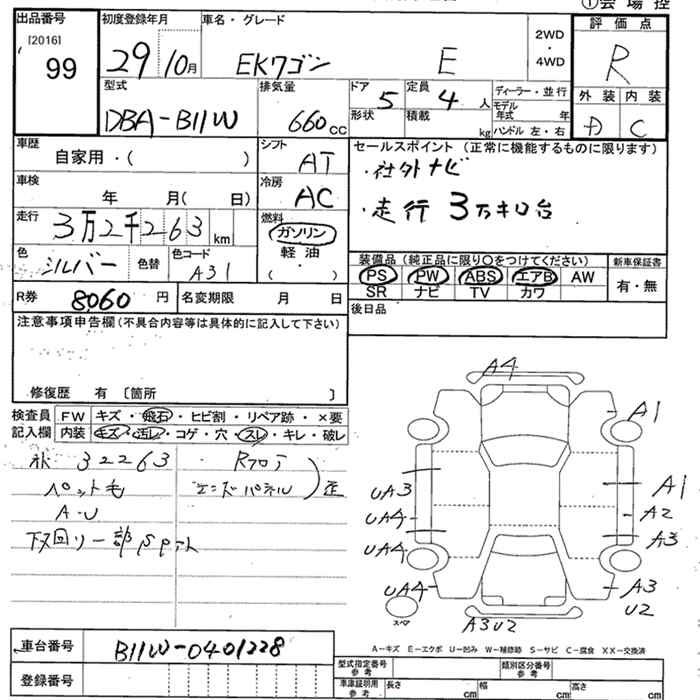 ①会場控
出品番号
[2016]
99
初度登録年月
29 10月
車名・グレード
EKワゴン E
2WD
・
4WD
評価点
R
型式
DBA-B11W
排気量
660cc
ドア 5
形状
定員 4 人
積載 kg
ディーラー・並行
モデル年式 年
ハンドル 左・右
外装 内装
A C
車歴
自家用・( )
シフト
AT
セールスポイント (正常に機能するものに限ります)
・社外ナビ
・走行3万キロ台
車検
年 月( 日)
冷房
AC
走行
3万2千263km
燃料
ガソリン
軽油
(・)
色
シルバー
色替
色コード
A31
装備品 (純正品に限り○をつけてください)
PS PW ABS エアB AW
SR ナビ TV カワ
新車保証書
有・無
R券 8060 円
名変期限 月 日
後日品
注意事項申告欄 (不具合内容等は具体的に記入して下さい)
修復歴 有 〔箇所 〕
検査員記入欄
FW キズ・飛石・ヒビ割・リペア跡・×要
内装 キズ・汚レ・コゲ・穴・スレ・キレ・破レ
32263
ペット毛
A・U
下回り一部
Rフロア
エンドパネル) 歪
A4
A1
A1
A2
A3
A3
U2
UA3
UA4
UA4
UA4
スペア
A3U2
A-キズ E-エクボ U-凹み W-補修跡 S-サビ C-腐食 XX-交換済
車台番号 B11W-0401228
登録番号
型式指定番号
参考
類別区分番号
参考
車庫証明用
参考
長さ cm
幅 cm
高さ cm